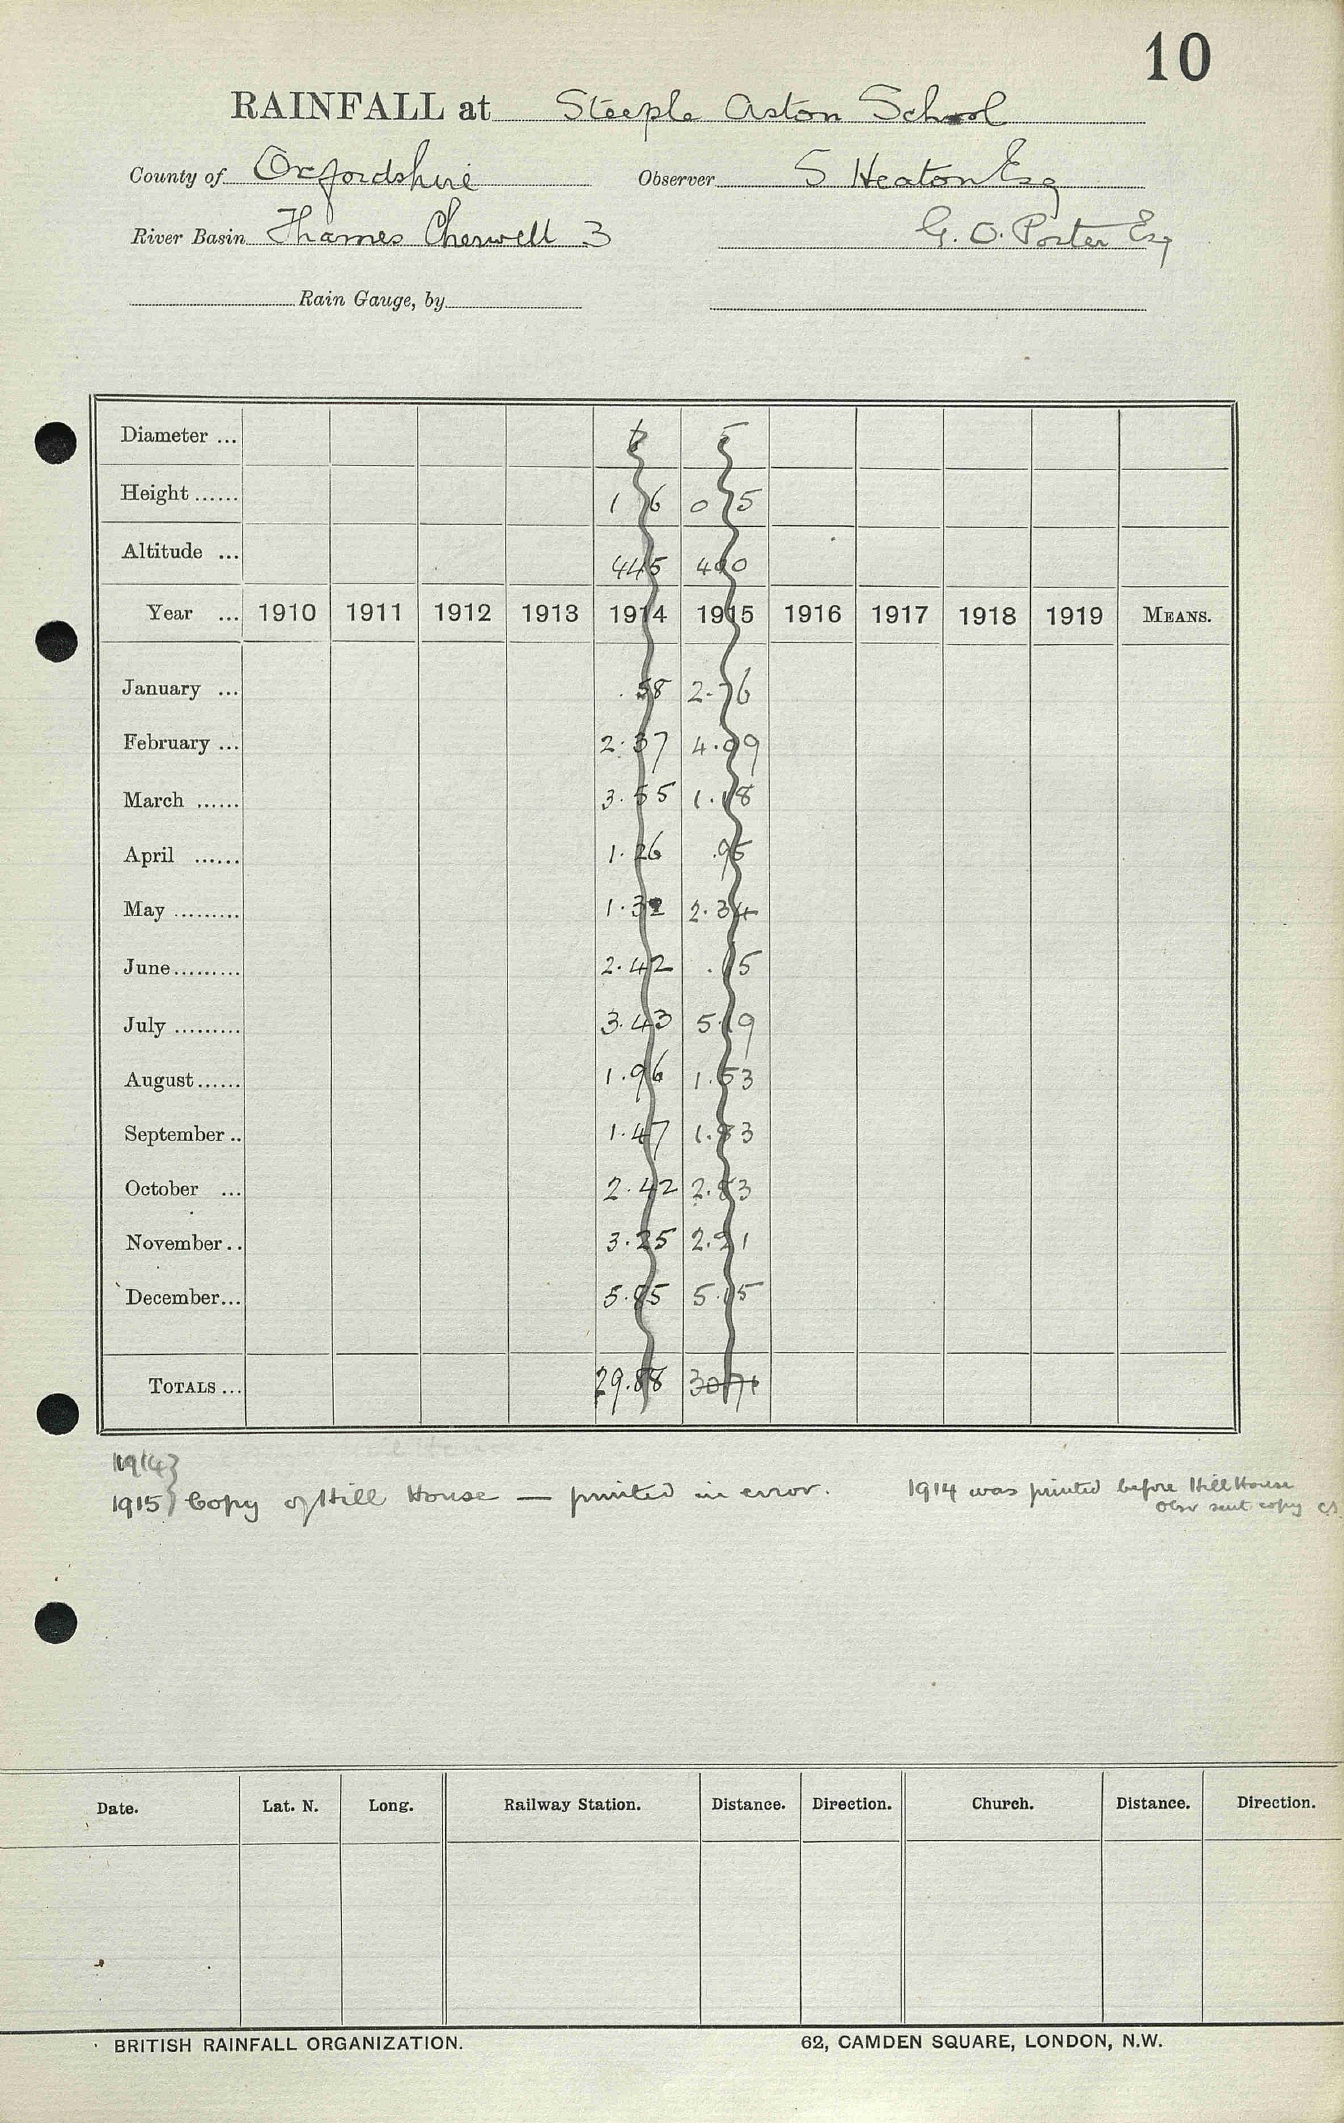 10
RAINFALL at Steeple Aston School
County of Oxfordshire Observer S Heaton Esq
River Basin Thames Cherwell 3 G. O. Porter Esq
Rain Gauge, by
Diameter ... 5
Height ...... 1 6 0 5
Altitude ... 445 400
Year ... 1910 1911 1912 1913 1914 1915 1916 1917 1918 1919 MEANS.
January ... .58 2.76
February ... 2.37 4.09
March ...... 3.55 1.18
April ...... 1.26 .95
May ......... 1.32 2.34
June ......... 2.42 .15
July ......... 3.43 5.19
August ...... 1.96 1.53
September .. 1.47
October ... 2.42
November .. 3.25
December ... 5.85 5.15
TOTALS ... 29.88 30.71
1914}
1915} Copy of Hill House — printed in error. 1914 was printed before Hill House
Obsr sent copy
Date. Lat. N. Long. Railway Station. Distance. Direction. Church. Distance. Direction.
BRITISH RAINFALL ORGANIZATION. 62, CAMDEN SQUARE, LONDON, N.W.